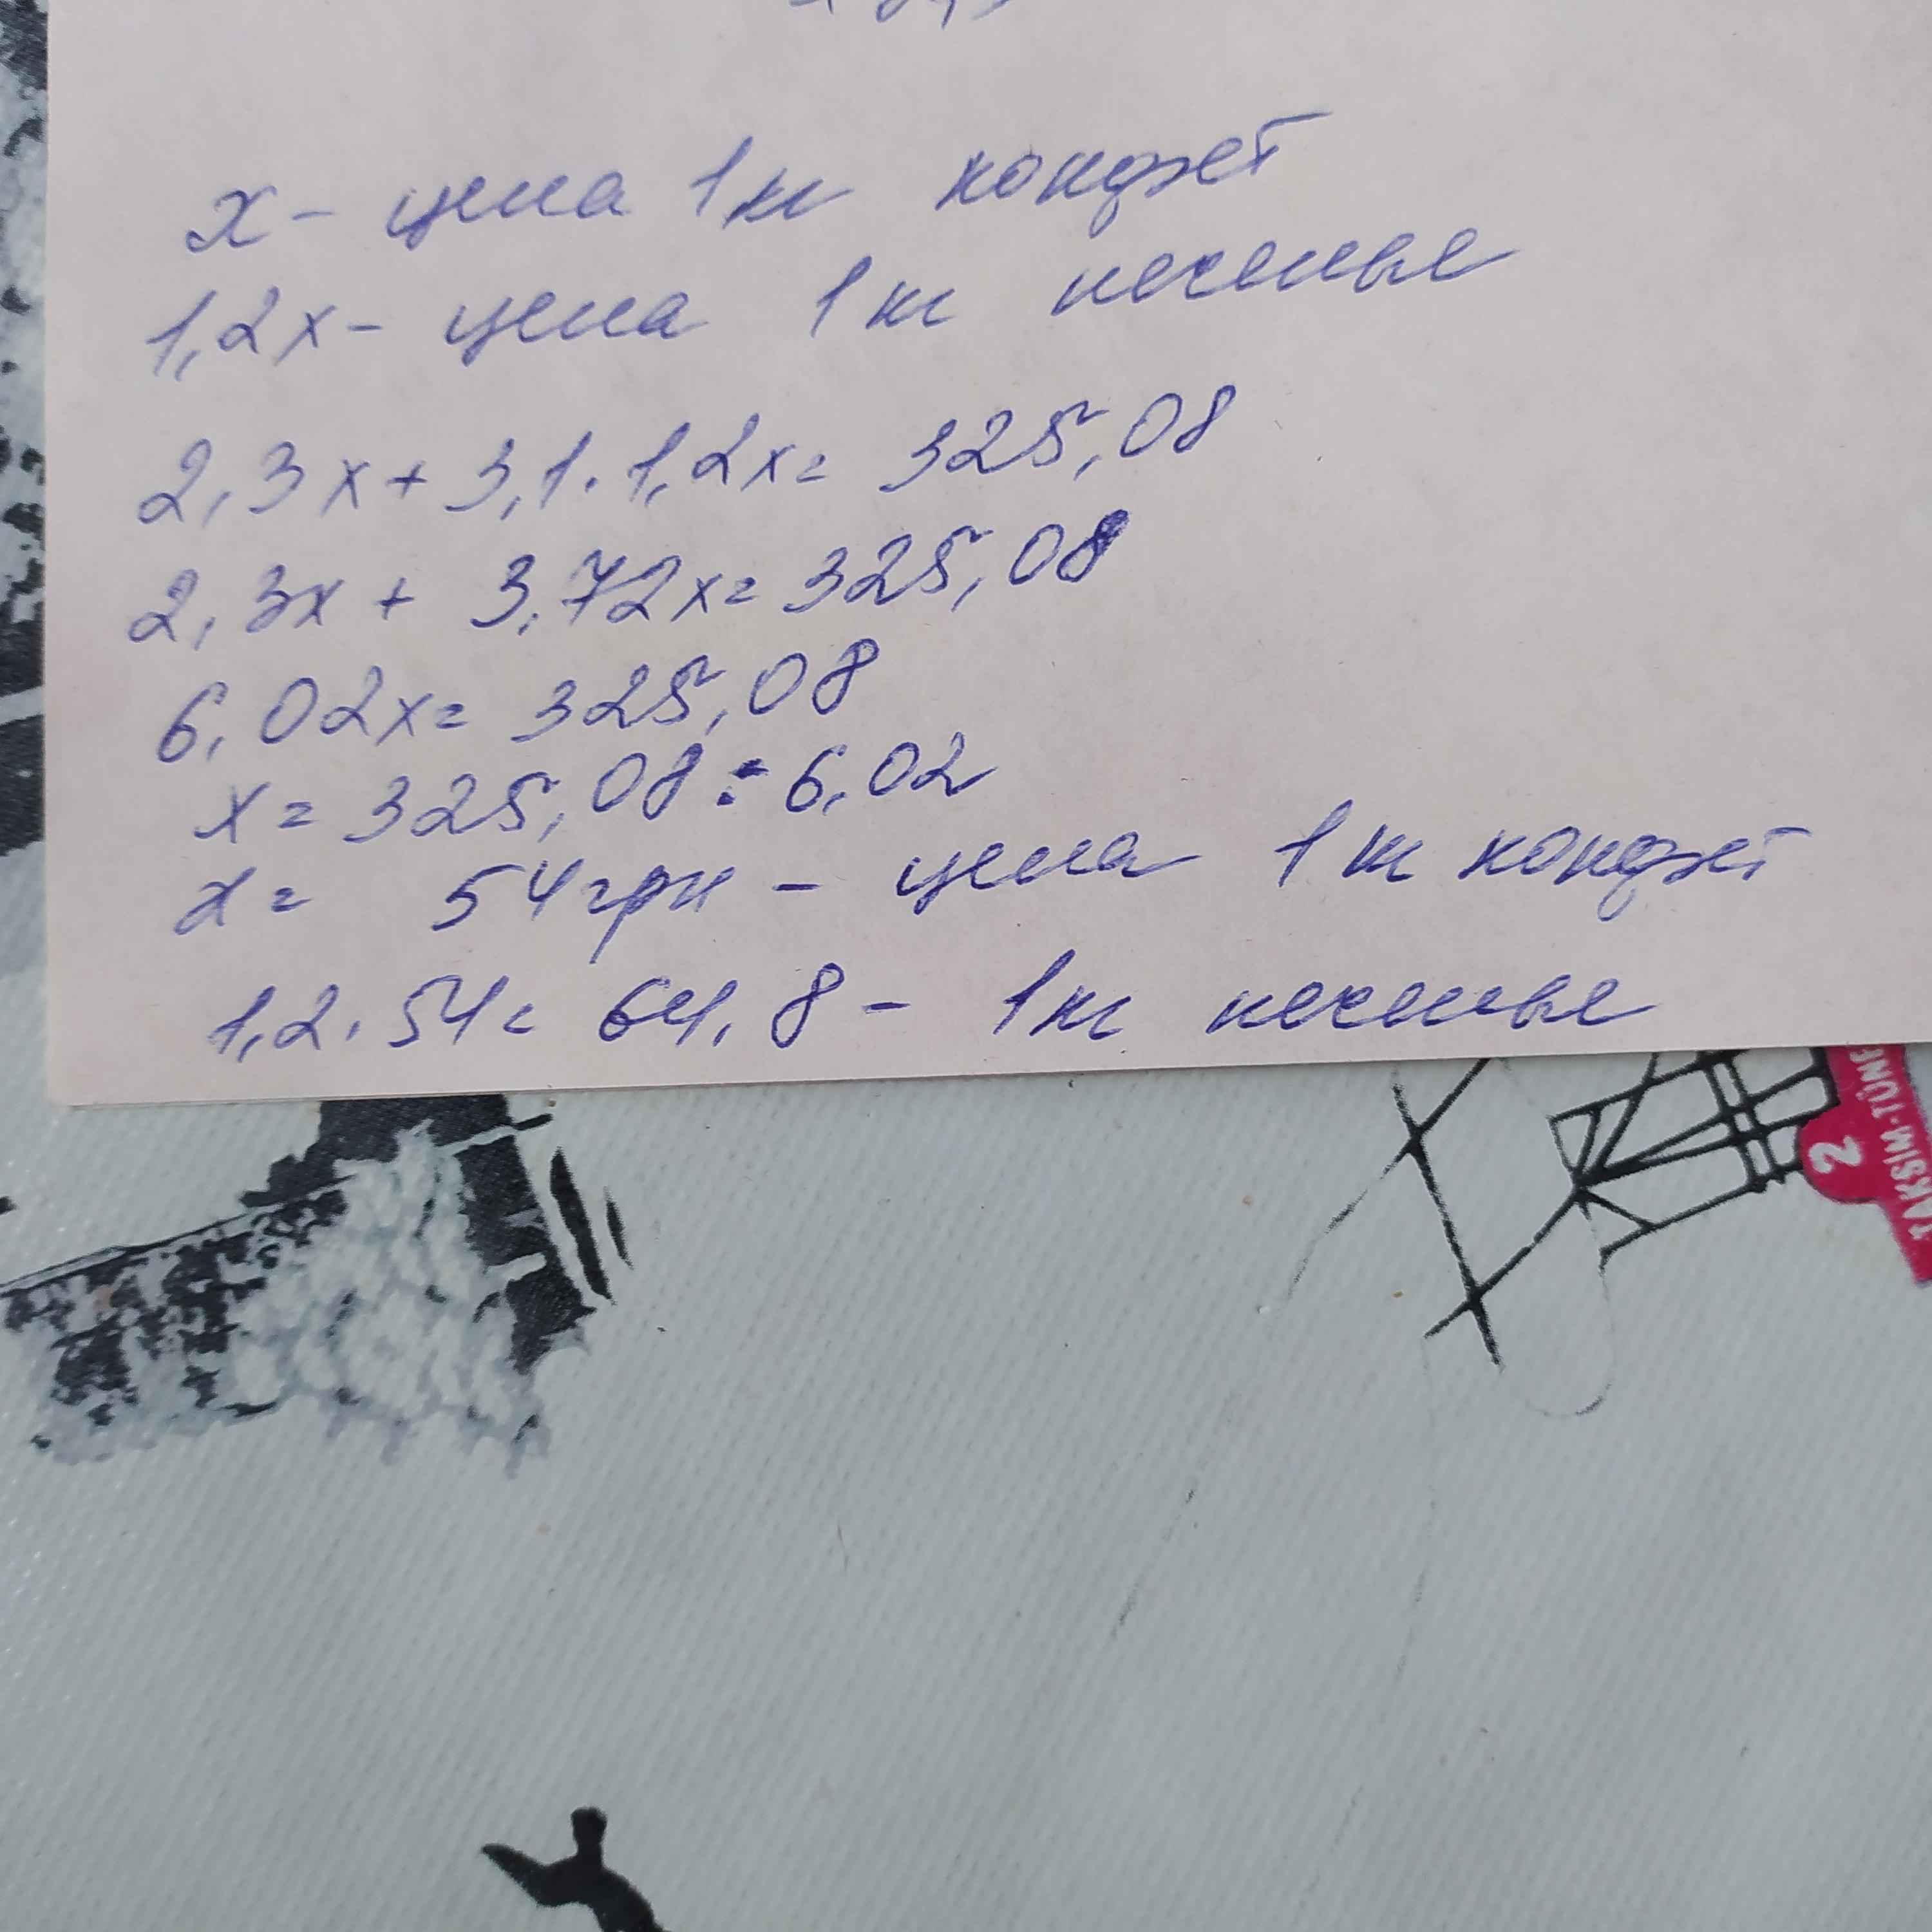 x - цена 1 кг конфет
1,2x - цена 1 кг печенье
2,3x + 3,1 · 1,2x = 325,08
2,3x + 3,72x = 325,08
6,02x = 325,08
x = 325,08 : 6,02
x = 54 грн - цена 1 кг конфет
1,2 · 54 = 64,8 - 1 кг печенье
2
TAKSİM-TÜNE